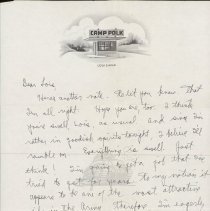 CAMP POLK
LOUISIANA
Dear Lois,
Here's another note. To let you know that
I'm all right. Hope you are, too. I think
you're swell, Lois, as usual and since I'm
rather in good spirits tonight, I believe I'll
just ramble on. Everything is swell. Just
think! I'm going to get a job that I've
tried to get for years. To my notion it
appears to be one of the most attractive
in the Army. Therefore I'm eagerly